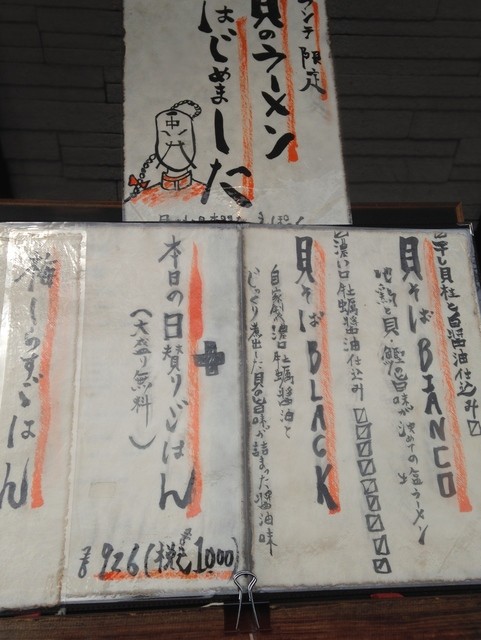 ランチ限定
貝のラーメン
はじめました
干し貝柱と白醤油仕込み
貝そばBIANCO
地鶏と貝・鰹の旨味が決めての塩ラーメン
濃い口牡蠣醤油仕込み
貝そばBLACK
自家製濃口牡蠣醤油と
じっくり煮出した貝の旨味が詰まった醤油味
＋
本日の日替りごはん
(大盛り無料)
926(税込1,000)
梅しらすごはん